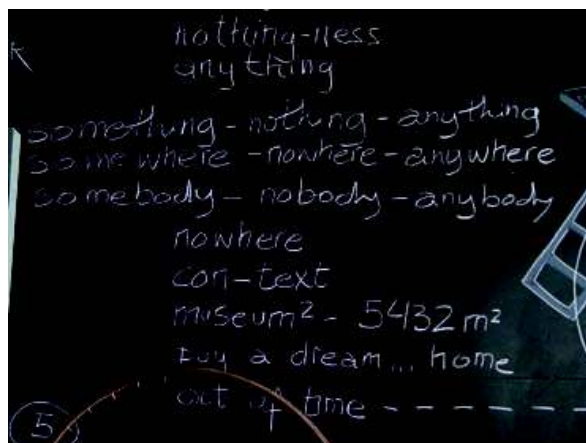 nothing-ness
k
anything
something - nothing - anything
somewhere - nowhere - anywhere
somebody - nobody - anybody
nowhere
con-text
museum² - 5432 m²
buy a dream... home
out of time - - - - - - -
5